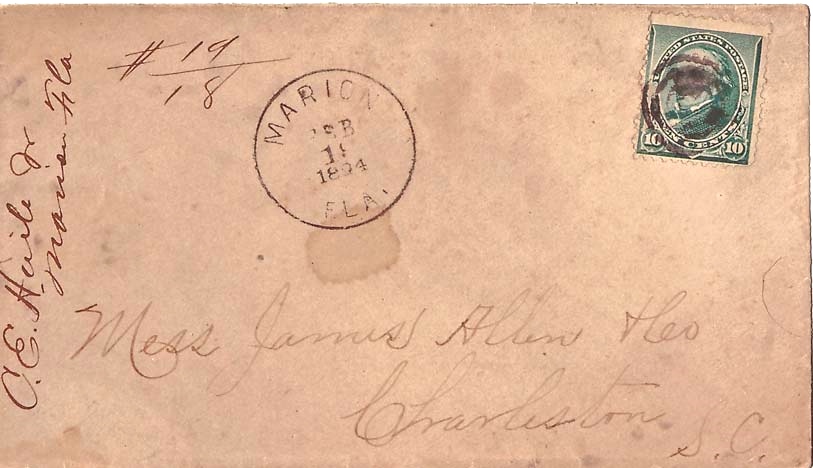 # 19/18
MARION
FEB
19
1894
FLA.
UNITED STATES POSTAGE
10 TEN CENTS 10
C. E. Haile Jr
Marion Fla
Mess James Allen & Co
Charleston
S. C.